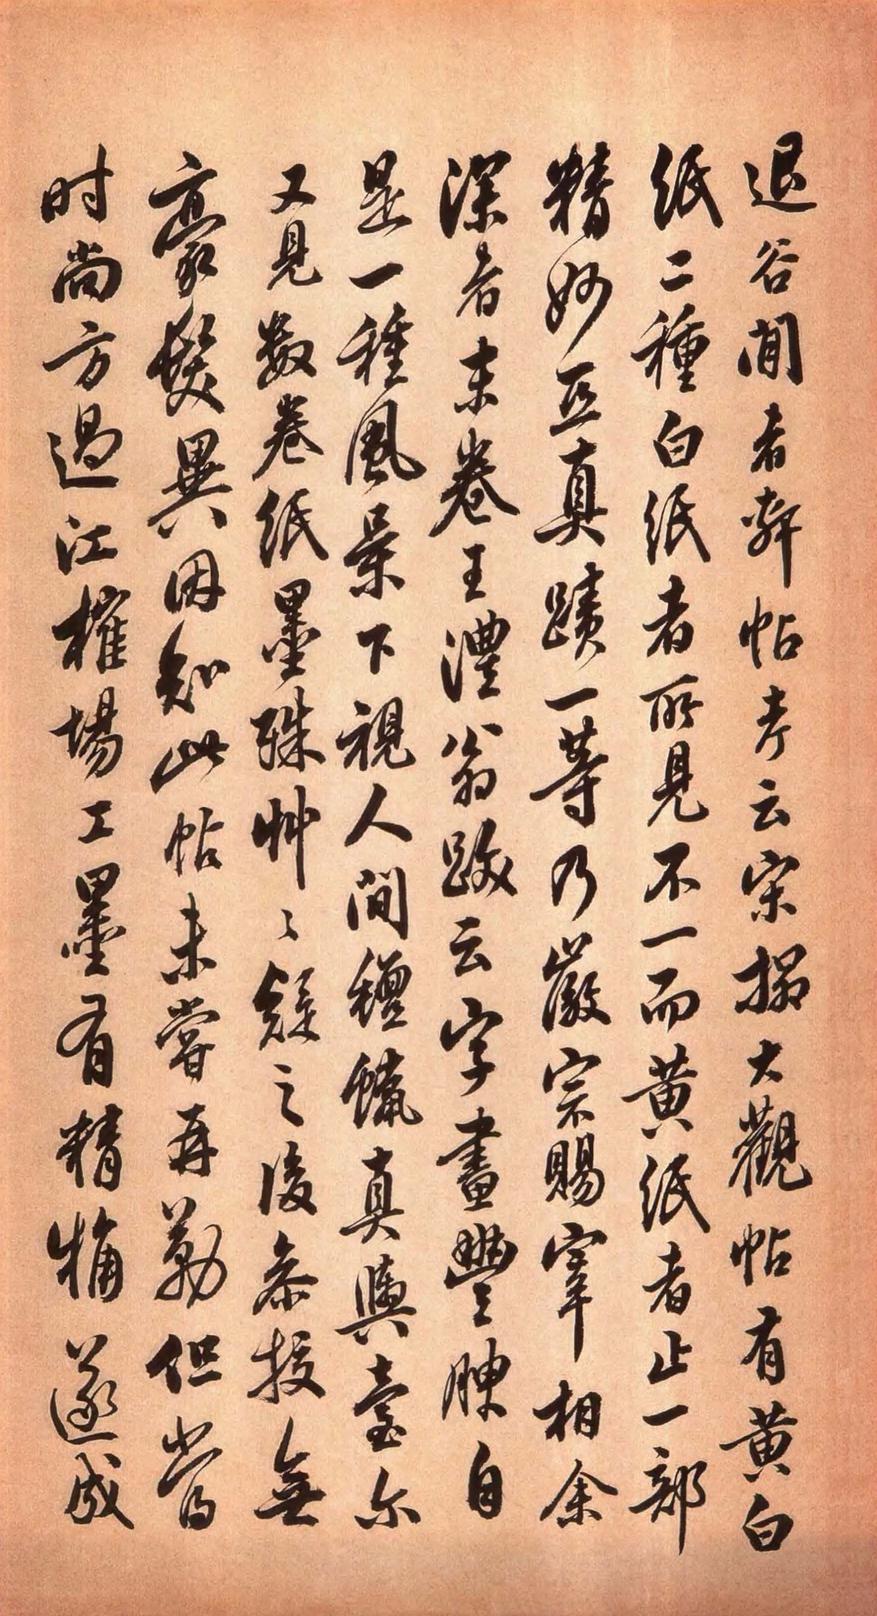 退谷閒者軒帖考云宋搨大觀帖有黄白
紙二種白紙者所見不一而黄紙者止一部
精妙亞真蹟一等乃徽宗賜宰相余
深者末卷王澧翁跋云字畫豐腴自
是一種風景下視人間氊蠟真輿臺尔
又見数卷紙墨殊艸〻疑之後叅挍無
豪髮異因知此帖未嘗再勒但當
时尚方過江榷場工墨有精觕遂成